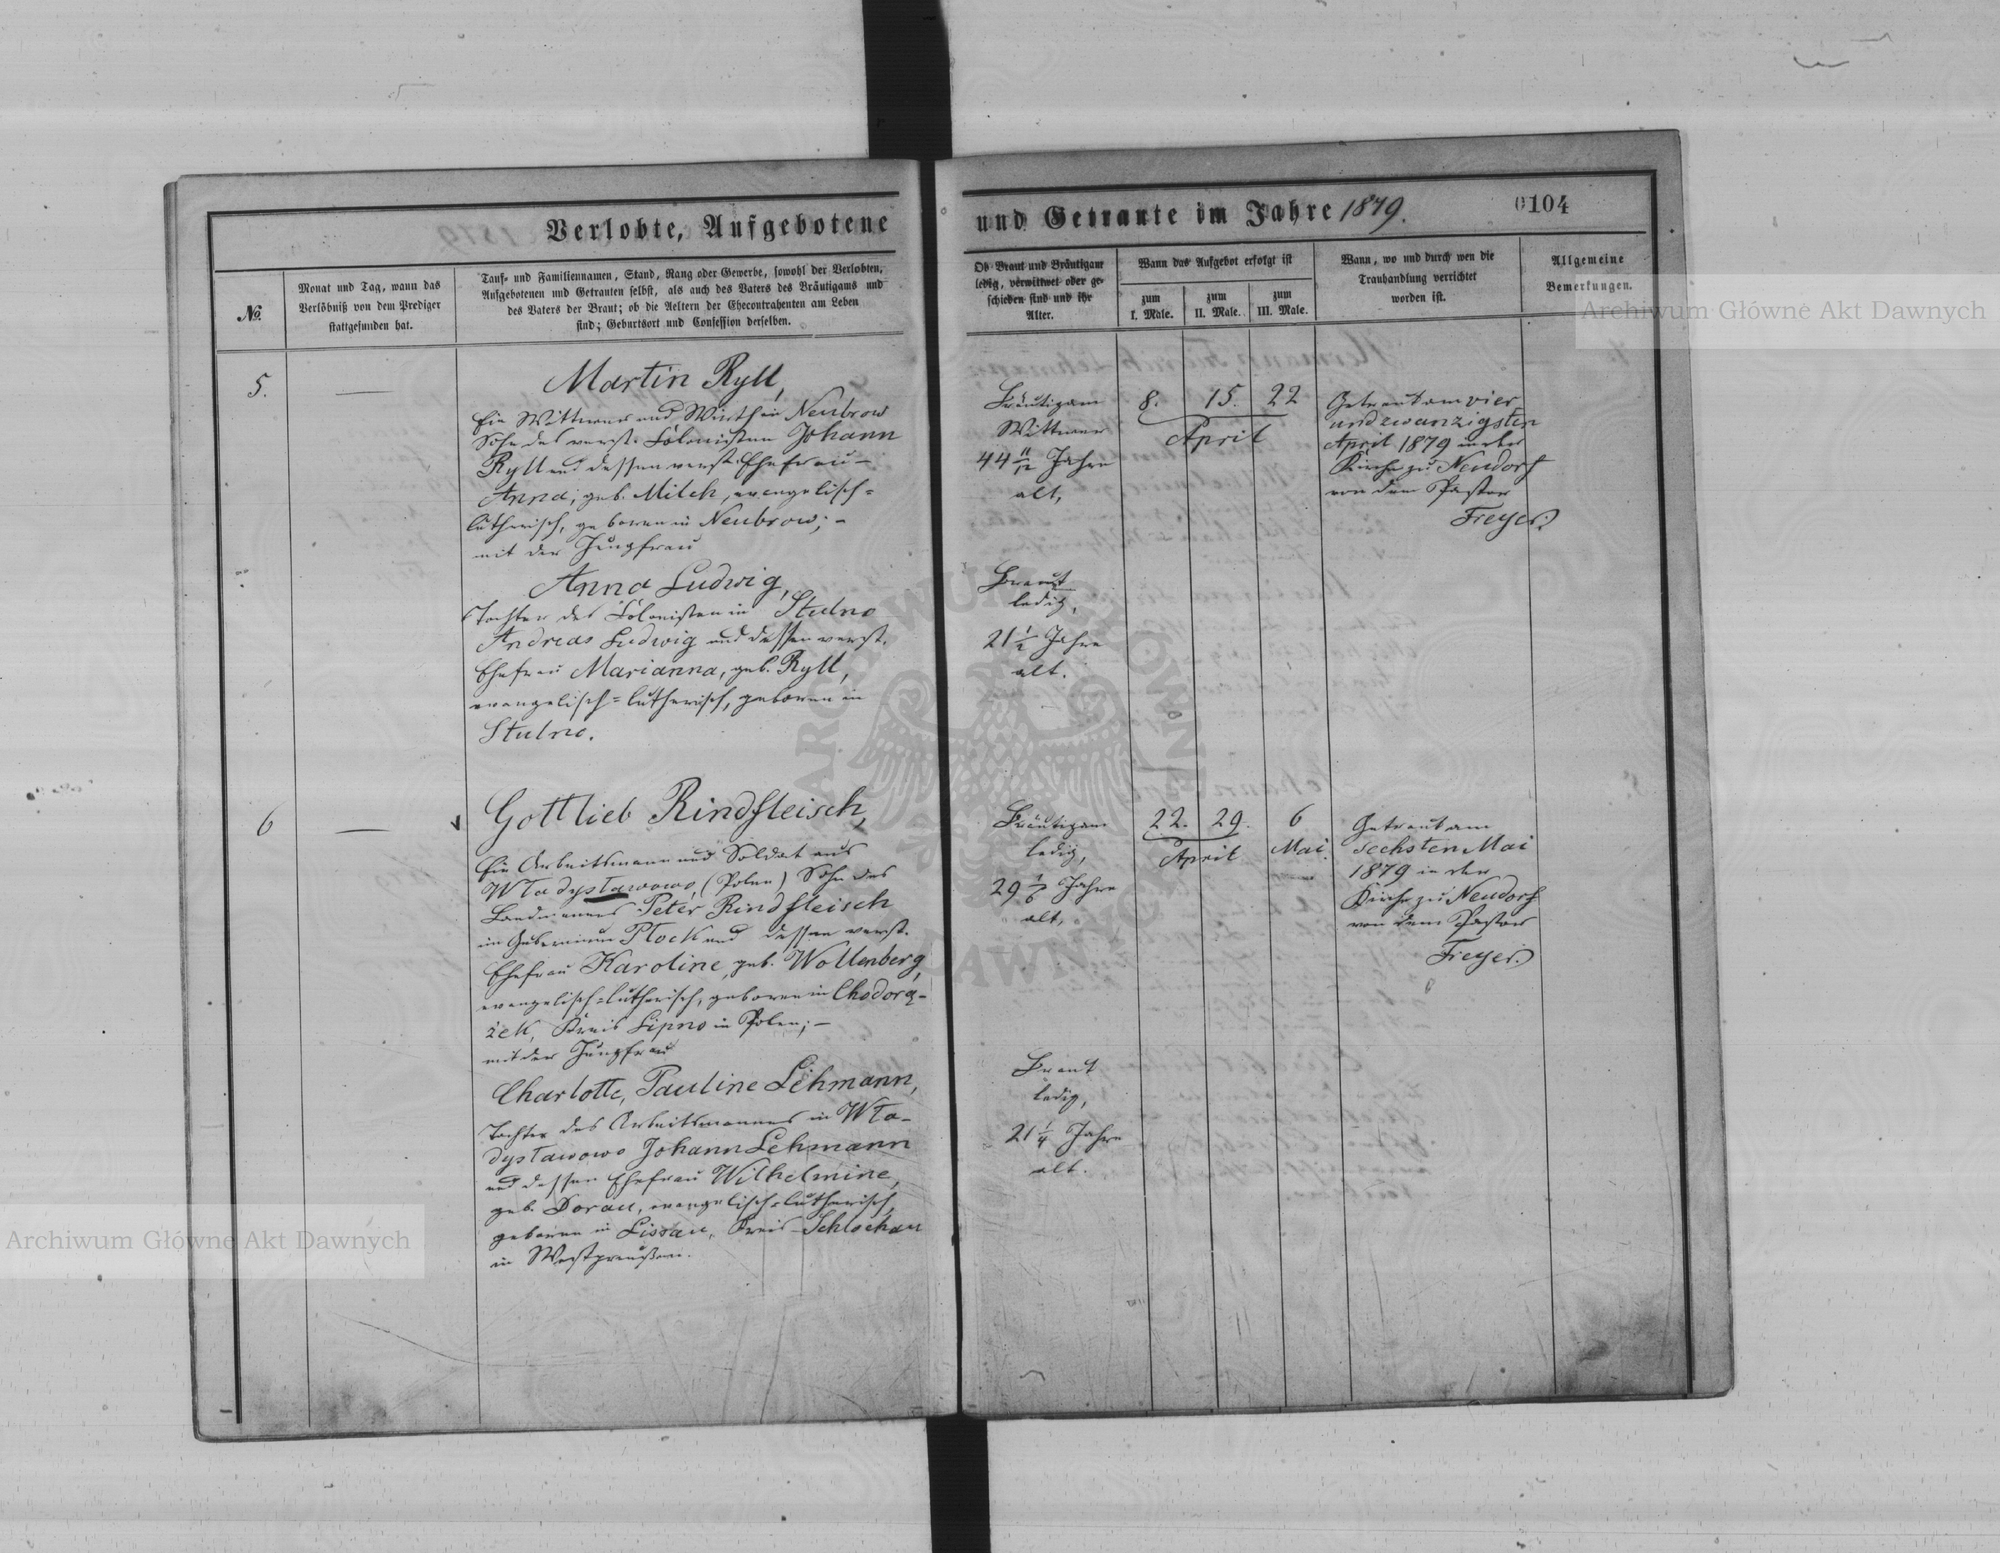 Verlobte, Aufgebotene
und Getraute im Jahre 1879.
0104
№.
Monat und Tag, wann das
Verlöbniß von dem Prediger
stattgefunden hat.
Tauf- und Familiennamen, Stand, Rang oder Gewerbe, sowohl der Verlobten,
Aufgebotenen und Getrauten selbst, als auch des Vaters des Bräutigams und
des Vaters der Braut; ob die Aeltern der Ehecontrahenten am Leben
sind; Geburtsort und Confession derselben.
Ob Braut und Bräutigam
ledig, verwittwet oder ge-
schieden sind und ihr
Alter.
Wann das Aufgebot erfolgt ist
zum
I. Male.
zum
II. Male.
zum
III. Male.
Wann, wo und durch wen die
Trauhandlung verrichtet
worden ist.
Allgemeine
Bemerkungen.
5.
Martin Ryll,
Ein Wittwer und Wirth in Neubrow
Sohn des verst. Colonisten Johann
Ryll und dessen verst. Ehefrau –
Anna, geb. Milch, evangelisch=
lutherisch, geboren in Neubrow; –
mit der Jungfrau
Anna Ludwig,
Tochter des Colonisten in Stulno
Andreas Ludwig und dessen verst.
Ehefrau Marianna, geb. Ryll,
evangelisch=lutherisch, geboren in
Stulno.
Bräutigam
Wittwer
44 11/12 Jahre
alt,
Braut
ledig,
21 1/2 Jahre
alt.
8. 15. 22
April
Getraut am vier
und zwanzigsten
April 1879 in der
Kirche zu Neudorf
von dem Pastor
Freyer.
6
Gottlieb Rindfleisch,
Ein Arbeitsmann und Soldat aus
Władysławowo, (Polen) Sohn des
Landmannes Peter Rindfleisch
im Gubernium Płock und dessen verst.
Ehefrau Karoline, geb. Wollenberg,
evangelisch=lutherisch, geboren in Chodorą-
żek, Kreis Lipno in Polen; –
mit der Jungfrau
Charlotte, Pauline Lehmann,
Tochter des Arbeitsmannes in Wła-
dysławowo Johann Lehmann
und dessen Ehefrau Wilhelmine,
geb. Dorau, evangelisch=lutherisch,
geboren in Lissau, Kreis Schlochau
in Westpreußen.
Bräutigam
ledig,
29 1/6 Jahre
alt,
Braut
ledig,
21 1/4 Jahre
alt.
22. 29. 6
April Mai.
Getraut am
sechsten Mai
1879 in der
Kirche zu Neudorf
von dem Pastor
Freyer.
Archiwum Główne Akt Dawnych
Archiwum Główne Akt Dawnych
ARCHIWUM GŁÓWNE AKT DAWNYCH